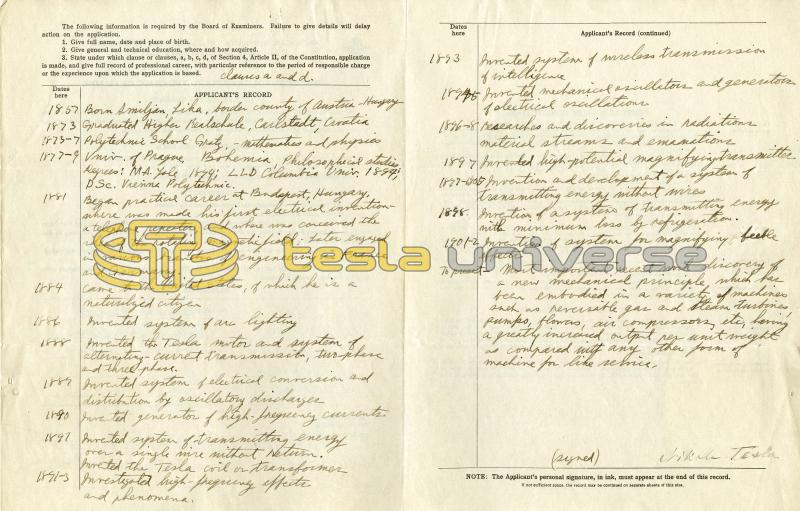 The following information is required by the Board of Examiners. Failure to give details will delay
action on the application.
1. Give full name, date and place of birth.
2. Give general and technical education, where and how acquired.
3. State under which clause or clauses, a, b, c, d, of Section 4, Article II, of the Constitution, application
is made, and give full record of professional career, with particular reference to the period of responsible charge
or the experience upon which the application is based. clauses a and d.
Dates
here
APPLICANT'S RECORD
1857 Born Smiljan, Lika, border county of Austria-Hungary
1873 Graduated Higher Realschule, Carlstadt, Croatia
1873-7 Polytechnic School Gratz, - mathematics and physics
1877-9 Univ. of Prague, Bohemia, Philosophical studies
Degrees: M.A. Yale, 1894; LLD Columbia Univ. 1894;
D.Sc. Vienna Polytechnic.
1881 Began practical career at Budapest, Hungary,
where was made his first electrical invention-
a telephone repeater, where was conceived the
rotating field: Later engaged
in engineering
and
1884 came to the United States, of which he is a
naturalized citizen
1886 Invented system of arc lighting
1888 Invented the Tesla motor and system of
alternating-current transmission, two-phase
and three phase.
1889 Invented system of electrical conversion and
distribution by oscillatory discharges
1890 Invented generator of high-frequency currents
1891 Invented system of transmitting energy
over a single wire without return.
Invented the Tesla coil or transformer
1891-3 Investigated high-frequency effects
and phenomena.
tesla universe
Dates
here
APPLICANT'S RECORD (continued)
1893 Invented system of wireless transmission
of intelligence
Invented mechanical oscillators and generators
of electrical oscillations
1896-8 Researches and discoveries in radiations
material streams and emanations
1897 Invented high-potential magnifying transmitter
Invention and development of a system of
transmitting energy without wires
1898 Invention of a system of transmitting energy
with minimum loss by refrigeration.
1901-2 Invention of system for magnifying feeble
effects
To present Most important recent work discovery of
a new mechanical principle, which has
been embodied in a variety of machines
such as reversible gas and steam turbines,
pumps, blowers, air compressors, etc, having
a greatly increased output per unit weight
as compared with any other form of
machine for like service.
(signed) Nikola Tesla
NOTE: The Applicant's personal signature, in ink, must appear at the end of this record.
If not sufficient space, the record may be continued on separate sheets of this size.